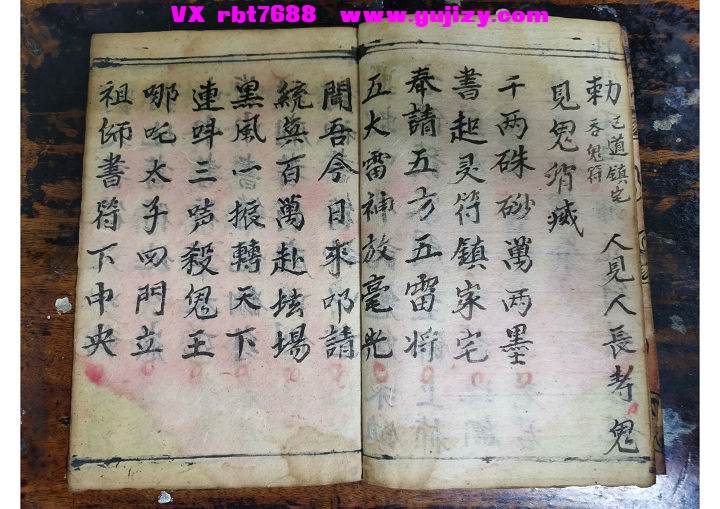 VX rbt7688 www.gujizy.com
勅 己道鎮宅 吞鬼符 人見人長寿鬼
見鬼消臧
千两硃砂萬两墨
書起灵符鎮家宅
奉請五方五雷将
五大雷神放毫光
聞吾今日來叩請
統兵百萬赴坛場
黑風一振轉天下
連呌三声殺鬼王
哪吒太子四門立
祖师書符下中央